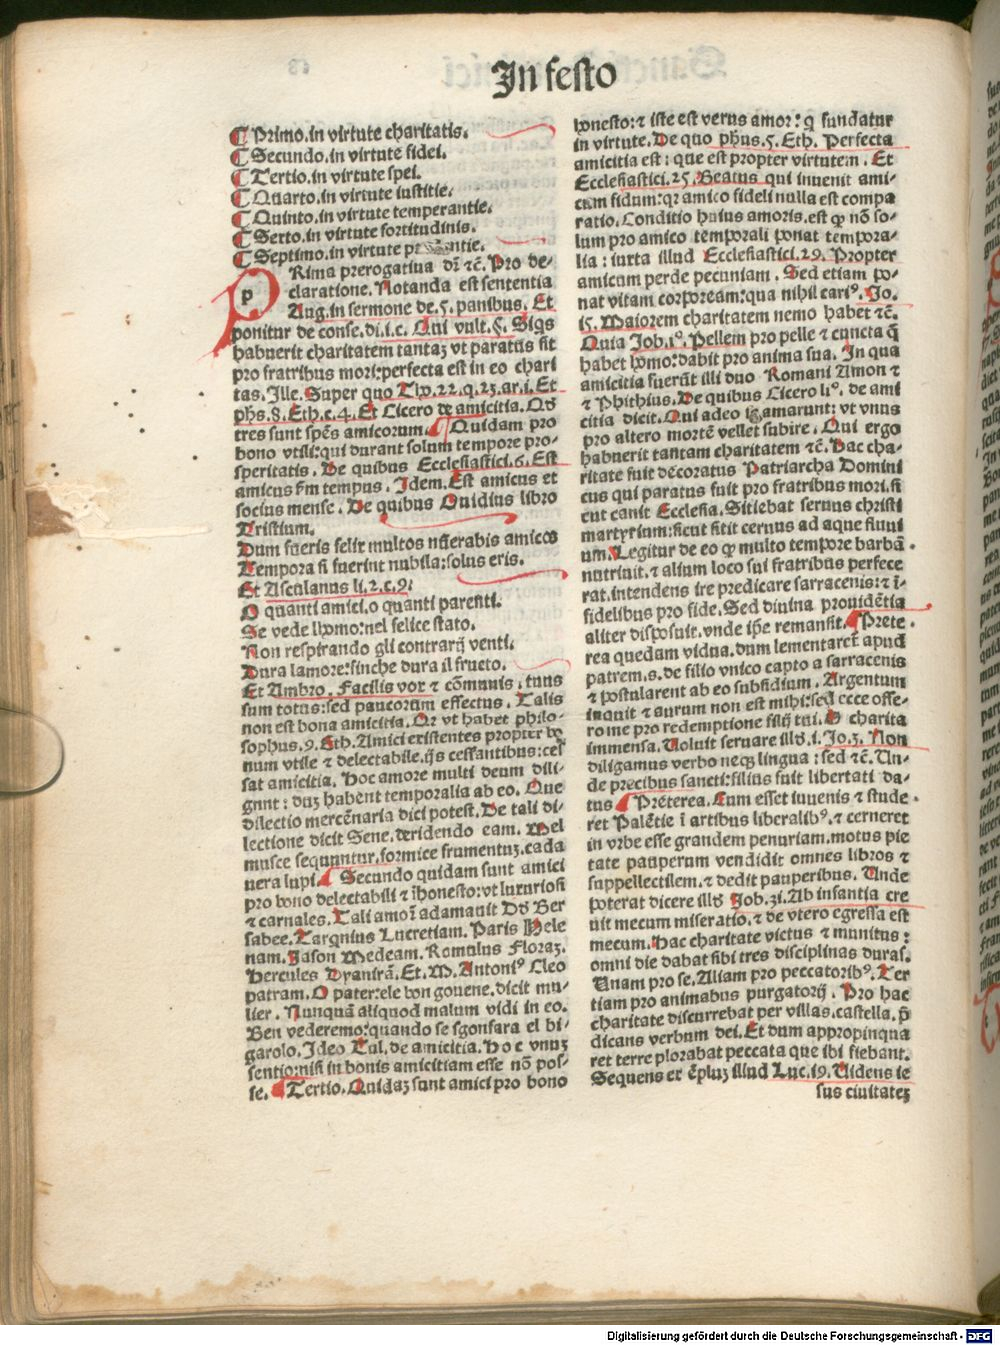 In festo
¶ Primo.in virtute charitatis.
¶ Secundo.in virtute fidei.
¶ Tertio.in virtute spei.
¶ Quarto.in virtute iustitie.
¶ Quinto.in virtute temperantie.
¶ Serto.in virtute fortitudinis.
¶ Septimo.in virtute pr antie.
pRima prerogatiua dr̄ ⁊c̄. Pro de-
claratione. Notanda est sententia
Aug.in sermone de.5.panibus. Et
ponitur de conse.di.i.c. Qui vult.§. Siqs
habuerit charitatem tantaꝫ vt paratus sit
pro fratribus mori:perfecta est in eo chari
tas. Ille. Super quo Tho.22.q.23.ar.i. Et
phs.8. Eth.c.4. Et Cicero de amicitia. Qd
tres sunt spēs amicorum. ¶ Quidam pro
bono vtili:qui durant solum tempore pro-
speritatis. De quibus Ecclesiastici.6. Est
amicus fm tempus. Idem. Est amicus et
socius mense. De quibus Ouidius libro
Tristium.
Dum fueris felix multos nūerabis amicos
Tempora si fuerint nubila:solus eris.
Et Asculanus li.2.c.9.
O quanti amici.o quanti parenti.
Se vede lhomo:nel felice stato.
Non respirando gli contrarij venti.
Dura lamore:sinche dura il frueto.
Et Ambro. Facilis vox ⁊ cōmunis. tuus
sum totus:sed paucorum effectus. Talis
non est bona amicitia. Qr vt habet philo-
sophus.9. Eth. Amici existentes propter bo
num vtile ⁊ delectabile.ijs cessantibus:ces
sat amicitia. Hoc amore multi deum dili-
gunt: duꝫ habent temporalia ab eo. Que
dilectio mercēnaria dici potest. De tali di-
lectione dicit Sene. deridendo eam. Mel
musce sequuntur.formice frumentuꝫ.cada
uera lupi. ¶ Secundo quidam sunt amici
pro bono delectabili ⁊ īhonesto:vt luxuriosi
⁊ carnales. Tali amor̄ adamauit Dd Ber
sabee. Tarqnius Lucretiam. Paris Hele
nam. Jason Medeam. Romulus Floraꝫ.
Hercules Dyanirā. Et. M. Antoniꝰ Cleo
patram. O pater:ele bon gouene.dicit mu-
lier. Nunquā aliquod malum vidi in eo.
Ben vederemo:quando se sgonfara el bi-
garolo. Ideo Tul.de amicitia. Hoc vnuꝫ
sentio:nisi in bonis amicitiam esse nō pos-
se. ¶ Tertio. Quidaꝫ sunt amici pro bono
honesto:⁊ iste est verus amor: q fundatur
in virtute. De quo phus.5. Eth. Perfecta
amicitia est: que est propter virtutem. Et
Ecclesiastici.25. Beatus qui inuenit ami-
cum fidum:qr amico fideli nulla est compa
ratio. Conditio huius amoris.est ꝙ nō so-
lum pro amico temporali ponat tempora-
lia: iuxta illud Ecclesiastici.29. Propter
amicum perde pecuniam. Sed etiam po-
nat vitam corpoream:qua nihil cariꝰ. Jo.
i5. Maiorem charitatem nemo habet ⁊c̄.
Quia Job.iº. Pellem pro pelle ⁊ cuncta q̄
habet homo:dabit pro anima sua. In qua
amicitia fuerūt illi duo Romani Amon ⁊
⁊ Phithius. De quibus Cicero liº. de ami
citia dicit. Qui adeo se amarunt: vt vnus
pro altero mortē vellet subire. Qui ergo
habuerit tantam charitatem ⁊c̄. Hac cha-
ritate fuit decoratus Patriarcha Domini
cus qui paratus fuit pro fratribus mori.si
cut canit Ecclesia. Sitiebat seruus christi
martyrium:sicut sitit ceruus ad aque fluui
um. Legitur de eo ꝙ multo tempore barbā
nutriuit.⁊ alium loco sui fratribus perfece
rat.intendens ire predicare sarracenis:⁊ ī-
fidelibus pro fide. Sed diuina prouidētia
aliter disposuit.vnde ipe remansit. ¶ Prete-
rea quedam vidua.dum lementaret apud
patrem.s.de filio vnico capto a sarracenis
⁊ postularent ab eo subsidium. Argentum
inquit ⁊ aurum non est mihi:sed ecce offe-
ro me pro redemptione filij tui. O charita
immensa. Uoluit seruare illd.i. Jo.3. Non
diligamus verbo necꝫ lingua: sed ⁊c̄. Un-
de precibus sancti:filius fuit libertati da-
tus ¶ Preterea. Cum esset iuuenis ⁊ stude-
ret Palētie ī artibus liberalibꝰ.⁊ cerneret
in vrbe esse grandem penuriam.motus pie
tate pauperum vendidit omnes libros ⁊
suppellectilem.⁊ dedit pauperibus. Unde
poterat dicere illd Job.3i. Ab infantia cre
uit mecum miseratio.⁊ de vtero egressa est
mecum. Hac charitate victus ⁊ munitus:
omni die dabat sibi tres disciplinas duras.
Unam pro se. Aliam pro peccatoribꝰ. Ter
tiam pro animabus purgatorij. Pro hac
charitate discurrebat per villas.castella.p̄
dicans verbum dei. Et dum appropinqua
ret terre plorabat peccata que ibi fiebant.
Sequens exēpluꝫ illud Luc.i9. Uidens ie
sus ciuitateꝫ
Digitalisierung gefördert durch die Deutsche Forschungsgemeinschaft - DFG